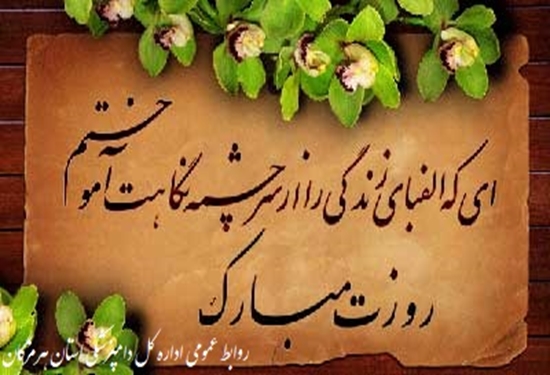 ای که الفبای زندگی را از سرچشمه نگاهت آموختم
روزت مبارک
روابط عمومی اداره کل دامپزشکی استان هرمزگان